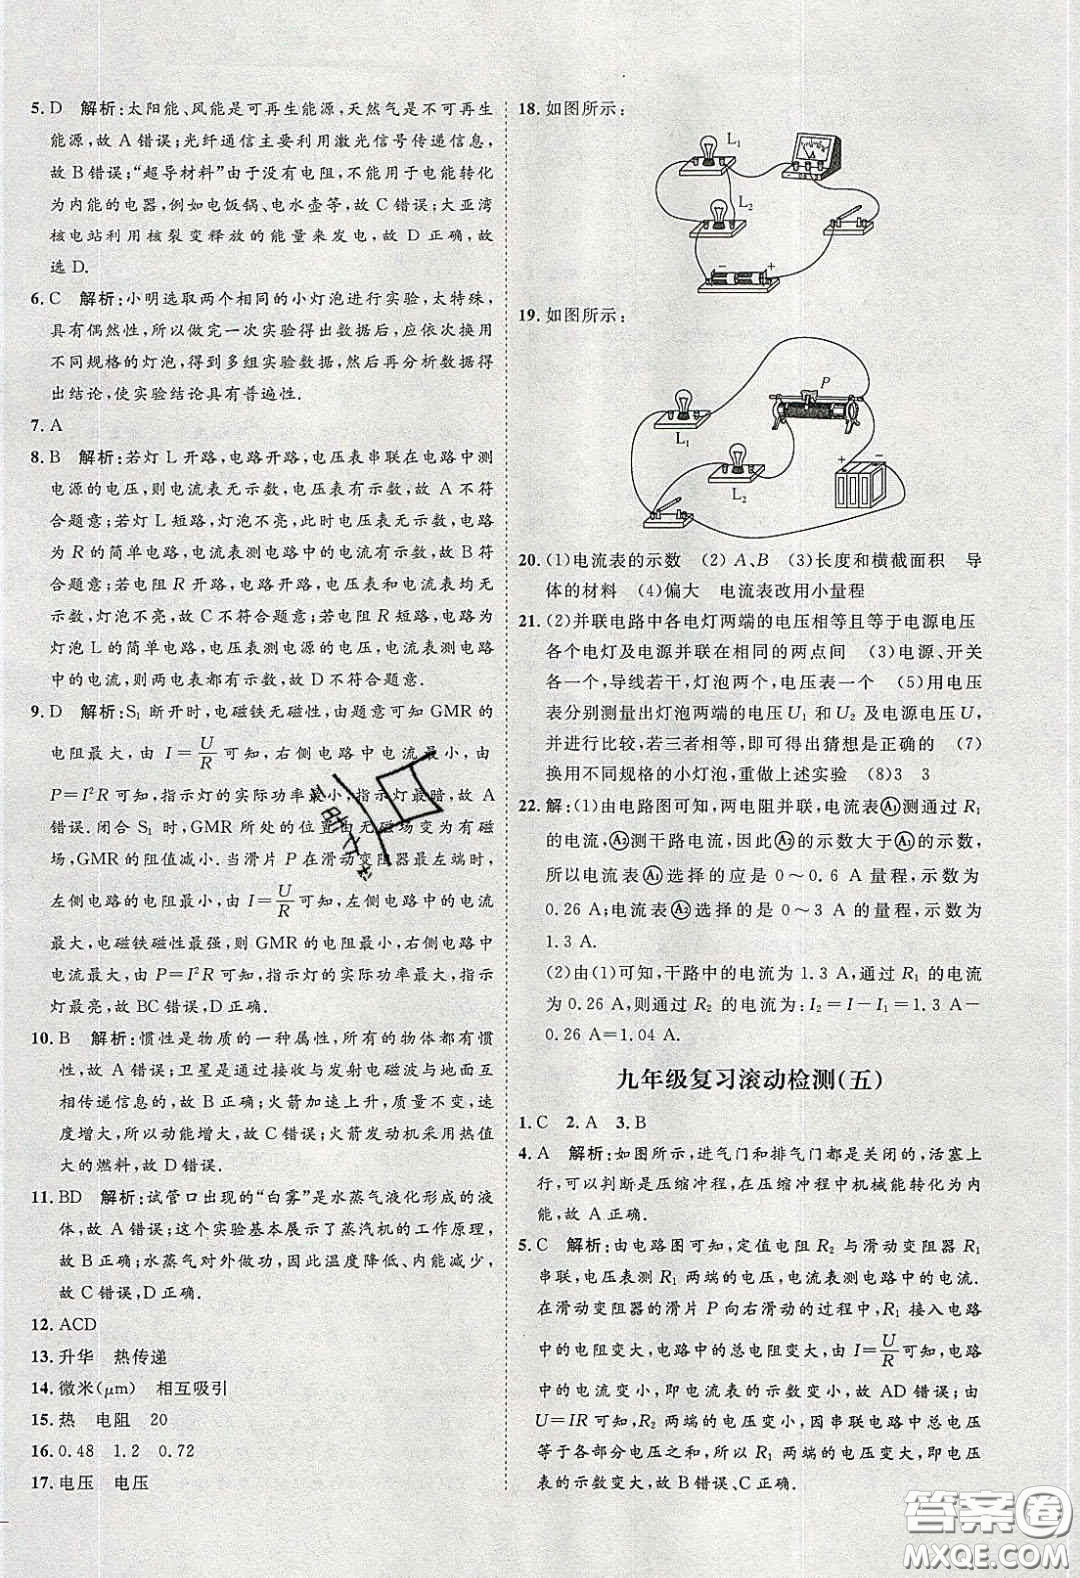 5. D 解析:太阳能、风能是可再生能源,天然气是不可再生
能源,故 A 错误;光纤通信主要利用激光信号传递信息,
故 B 错误;“超导材料”由于没有电阻,不能用于电能转化
为内能的电器,例如电饭锅、电水壶等,故 C 错误;大亚湾
核电站利用核裂变释放的能量来发电,故 D 正确,故
选 D.
6. C 解析:小明选取两个相同的小灯泡进行实验,太特殊,
具有偶然性,所以做完一次实验得出数据后,应依次换用
不同规格的灯泡,得到多组实验数据,然后再分析数据得
出结论,使实验结论具有普遍性.
7. A
8. B 解析:若灯 L 开路,电路开路,电压表串联在电路中测
电源的电压,则电流表无示数,电压表有示数,故 A 不符
合题意;若灯 L 短路,灯泡不亮,此时电压表无示数,电路
为 R 的简单电路,电流表测电路中的电流有示数,故 B 符
合题意;若电阻 R 开路,电路开路,电压表和电流表均无
示数,灯泡不亮,故 C 不符合题意;若电阻 R 短路,电路为
灯泡 L 的简单电路,电压表测电源的电压,电流表测电路
中的电流,则两电表都有示数,故 D 不符合题意.
9. D 解析:S₁ 断开时,电磁铁无磁性,由题意可知 GMR 的
电阻最大,由 I=U/R 可知,右侧电路中电流最小,由
P=I²R 可知,指示灯的实际功率最小,指示灯最暗,故 A
错误.闭合 S₁ 时,GMR 所处的位置由无磁场变为有磁
场,GMR 的阻值减小.当滑片 P 在滑动变阻器最左端时,
左侧电路的电阻最小,由 I=U/R 可知,左侧电路中的电流
最大,电磁铁磁性最强,则 GMR 的电阻最小,右侧电路中
电流最大,由 P=I²R 可知,指示灯的实际功率最大,指示
灯最亮,故 BC 错误,D 正确.
10. B 解析:惯性是物质的一种属性,所有的物体都有惯
性,故 A 错误;卫星是通过接收与发射电磁波与地面进
行信息交流,故 B 正确;火箭加速升空,质量不变,速
度增大,所以动能增大,故 C 错误;火箭发动机采用热值
大的燃料,故 D 错误.
11. BD 解析:试管口出现的“白雾”是水蒸气液化形成的液
体,故 A 错误;这个实验基本展示了蒸汽机的工作原理,
故 B 正确;水蒸气对外做功,因此温度降低、内能减少,
故 C 错误,D 正确.
12. ACD
13. 升华 热传递
14. 微米(μm) 相互吸引
15. 热 电阻 20
16. 0.48 1.2 0.72
17. 电压 电压
18. 如图所示:
L₁
L₂
− +
19. 如图所示:
P
L₁
+ −
L₂
20. (1)电流表的示数 (2) A、B (3)长度和横截面积 导
体的材料 (4)偏大 电流表改用小量程
21. (2)并联电路中各电灯两端的电压相等且等于电源电压
各个电灯及电源并联在相同的两点间 (3)电源、开关
各一个,导线若干,灯泡两个,电压表一个 (5)用电压
表分别测量出灯泡两端的电压 U₁ 和 U₂ 及电源电压 U,
并进行比较,若三者相等,即可得出猜想是正确的 (7)
换用不同规格的小灯泡,重做上述实验 (8)3 3
22. 解:(1)由电路图可知,两电阻并联,电流表Ⓐ₁测通过 R₁
的电流,Ⓐ₂测干路电流,因此Ⓐ₂的示数大于Ⓐ₁的示数,
所以电流表Ⓐ₁选择的应是 0～0.6 A 量程,示数为
0.26 A;电流表Ⓐ₂选择的是 0～3 A 的量程,示数为
1.3 A.
(2)由(1)可知,干路中的电流为 1.3 A,通过 R₁ 的电流
为 0.26 A,则通过 R₂ 的电流为:I₂=I−I₁=1.3 A−
0.26 A=1.04 A.
九年级复习滚动检测(五)
1. C 2. A 3. B
4. A 解析:如图所示,进气门和排气门都是关闭的,活塞上
行,可以判断是压缩冲程,在压缩冲程中机械能转化为内
能,故 A 正确.
5. C 解析:由电路图可知,定值电阻 R₂ 与滑动变阻器 R₁
串联,电压表测 R₁ 两端的电压,电流表测电路中的电流.
在滑动变阻器的滑片 P 向右滑动的过程中,R₁ 接入电路
中的电阻变大,电路中的总电阻变大,由 I=U/R 可知,电路
中的电流变小,即电流表的示数变小,故 AD 错误;由
U=IR 可知,R₂ 两端的电压变小,因串联电路中总电压
等于各部分电压之和,所以 R₁ 两端的电压变大,即电压
表的示数变大,故 B 错误、C 正确.
答案圈
MXQE.COM